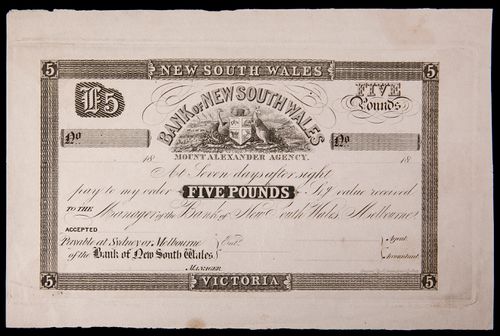 5 NEW SOUTH WALES 5
£5
FIVE
Pounds
BANK OF NEW SOUTH WALES
No No
18 MOUNT ALEXANDER AGENCY. 18
At Seven days after sight
pay to my order FIVE POUNDS Stg value received
TO THE Manager of the Bank of New South Wales Melbourne
ACCEPTED
Payable at Sydney or Melbourne Entd. Agent
of the Bank of New South Wales Accountant
MANAGER
5 VICTORIA 5